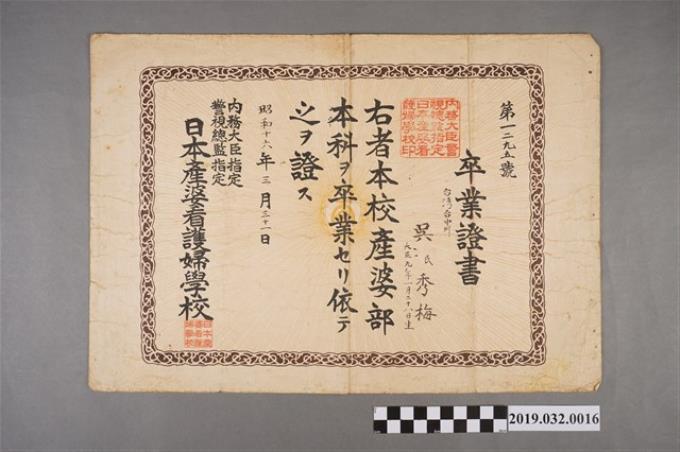 第一二九五號
卒業證書
台湾台中州
吳氏秀梅
大正九年一月二十八日生
右者本校產婆部
本科ヲ卒業セリ依テ
之ヲ證ス
昭和十六年三月三十一日
內務大臣指定
警視總監指定
日本產婆看護婦學校
內務大臣警
視總監指定
日本產婆看
護婦學校印
2019.032.0016